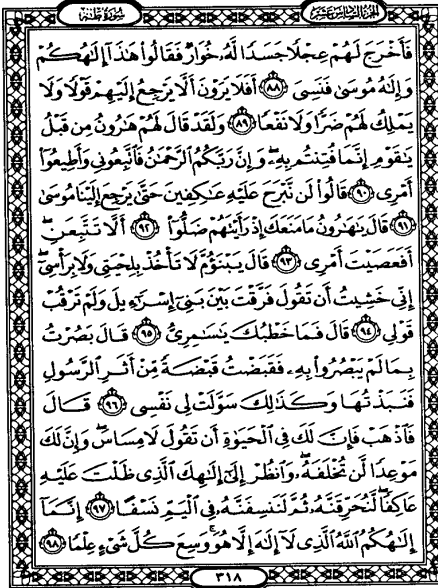 سُورَةُ طه
الجُزْءُ السَّادِسَ عَشَرَ
فَأَخْرَجَ لَهُمْ عِجْلًا جَسَدًا لَّهُۥ خُوَارٌ فَقَالُوا۟ هَٰذَآ إِلَٰهُكُمْ
وَإِلَٰهُ مُوسَىٰ فَنَسِىَ ٨٨ أَفَلَا يَرَوْنَ أَلَّا يَرْجِعُ إِلَيْهِمْ قَوْلًا وَلَا
يَمْلِكُ لَهُمْ ضَرًّا وَلَا نَفْعًا ٨٩ وَلَقَدْ قَالَ لَهُمْ هَٰرُونُ مِن قَبْلُ
يَٰقَوْمِ إِنَّمَا فُتِنتُم بِهِۦ وَإِنَّ رَبَّكُمُ ٱلرَّحْمَٰنُ فَٱتَّبِعُونِى وَأَطِيعُوٓا۟
أَمْرِى ٩٠ قَالُوا۟ لَن نَّبْرَحَ عَلَيْهِ عَٰكِفِينَ حَتَّىٰ يَرْجِعَ إِلَيْنَا مُوسَىٰ
٩١ قَالَ يَٰهَٰرُونُ مَا مَنَعَكَ إِذْ رَأَيْتَهُمْ ضَلُّوٓا۟ ٩٢ أَلَّا تَتَّبِعَنِ
أَفَعَصَيْتَ أَمْرِى ٩٣ قَالَ يَبْنَؤُمَّ لَا تَأْخُذْ بِلِحْيَتِى وَلَا بِرَأْسِىٓ
إِنِّى خَشِيتُ أَن تَقُولَ فَرَّقْتَ بَيْنَ بَنِىٓ إِسْرَٰٓءِيلَ وَلَمْ تَرْقُبْ
قَوْلِى ٩٤ قَالَ فَمَا خَطْبُكَ يَٰسَٰمِرِىُّ ٩٥ قَالَ بَصُرْتُ
بِمَا لَمْ يَبْصُرُوا۟ بِهِۦ فَقَبَضْتُ قَبْضَةً مِّنْ أَثَرِ ٱلرَّسُولِ
فَنَبَذْتُهَا وَكَذَٰلِكَ سَوَّلَتْ لِى نَفْسِى ٩٦ قَالَ
فَٱذْهَبْ فَإِنَّ لَكَ فِى ٱلْحَيَوٰةِ أَن تَقُولَ لَا مِسَاسَ وَإِنَّ لَكَ
مَوْعِدًا لَّن تُخْلَفَهُۥ وَٱنظُرْ إِلَىٰٓ إِلَٰهِكَ ٱلَّذِى ظَلْتَ عَلَيْهِ
عَاكِفًا لَّنُحَرِّقَنَّهُۥ ثُمَّ لَنَنسِفَنَّهُۥ فِى ٱلْيَمِّ نَسْفًا ٩٧ إِنَّمَآ
إِلَٰهُكُمُ ٱللَّهُ ٱلَّذِى لَآ إِلَٰهَ إِلَّا هُوَ وَسِعَ كُلَّ شَىْءٍ عِلْمًا ٩٨
٣١٨